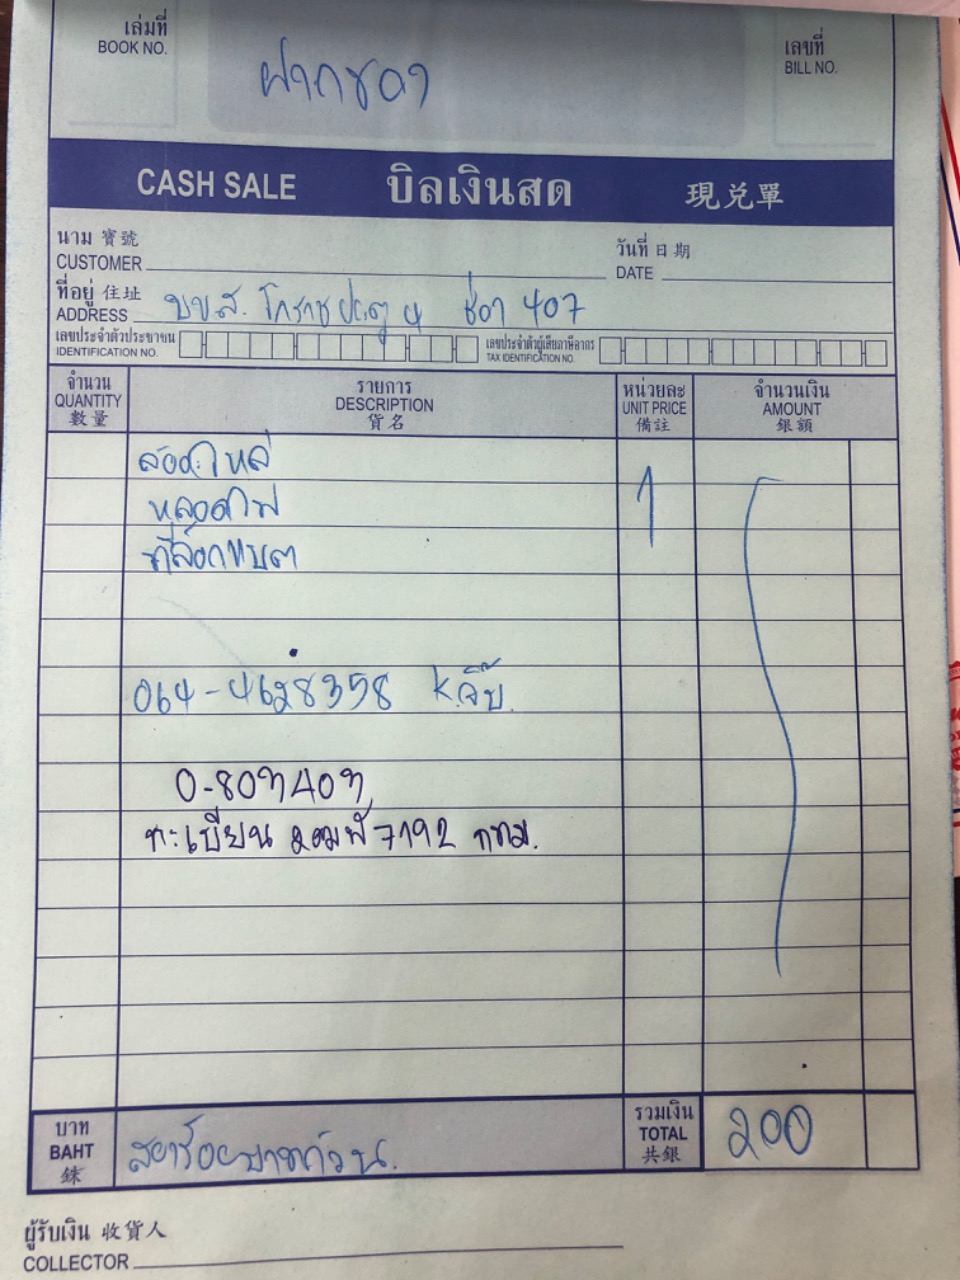 เล่มที่
BOOK NO.
เลขที่
BILL NO.
CASH SALE บิลเงินสด 現兑單
นาม 寶號
CUSTOMER
วันที่ 日期
DATE
ที่อยู่ 住址
ADDRESS บขส. โคราช ช่อง 407
เลขประจำตัวประชาชน
IDENTIFICATION NO.
เลขประจำตัวผู้เสียภาษีอากร
TAX IDENTIFICATION NO.
จำนวน
QUANTITY
數量
รายการ
DESCRIPTION
貨名
หน่วยละ
UNIT PRICE
備註
จำนวนเงิน
AMOUNT
銀額
หลอดไฟ
1
064-4628358 K.จิ๊บ.
ทะเบียน 7192 กทม.
บาท
BAHT
銖
สองร้อยบาทถ้วน.
รวมเงิน
TOTAL
共銀
200
ผู้รับเงิน 收貨人
COLLECTOR